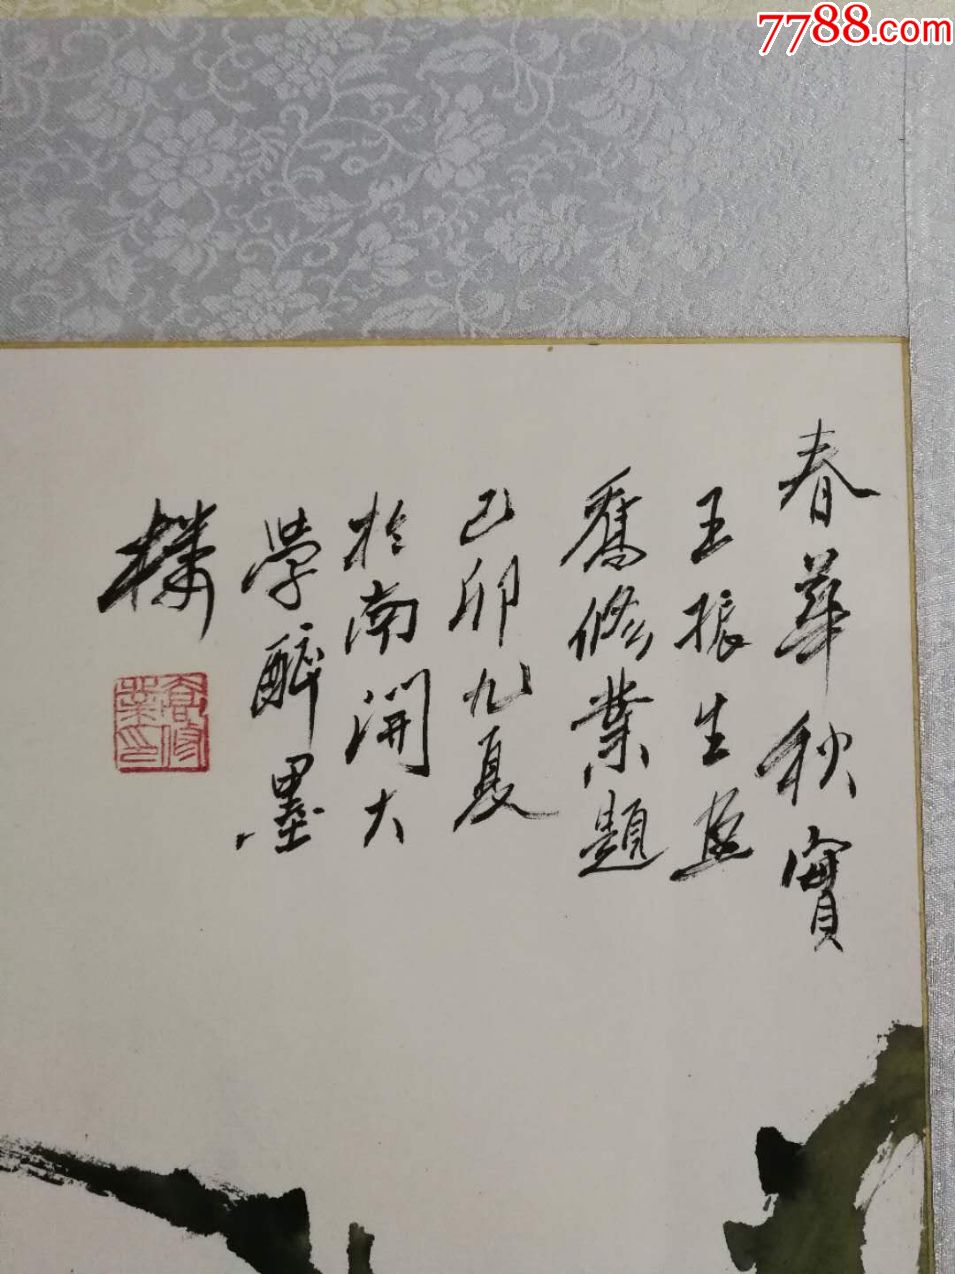 7788.com
春華秋實
王振生画
喬修業題
己卯九夏
於南開大
學醉墨
樓
喬修
業印